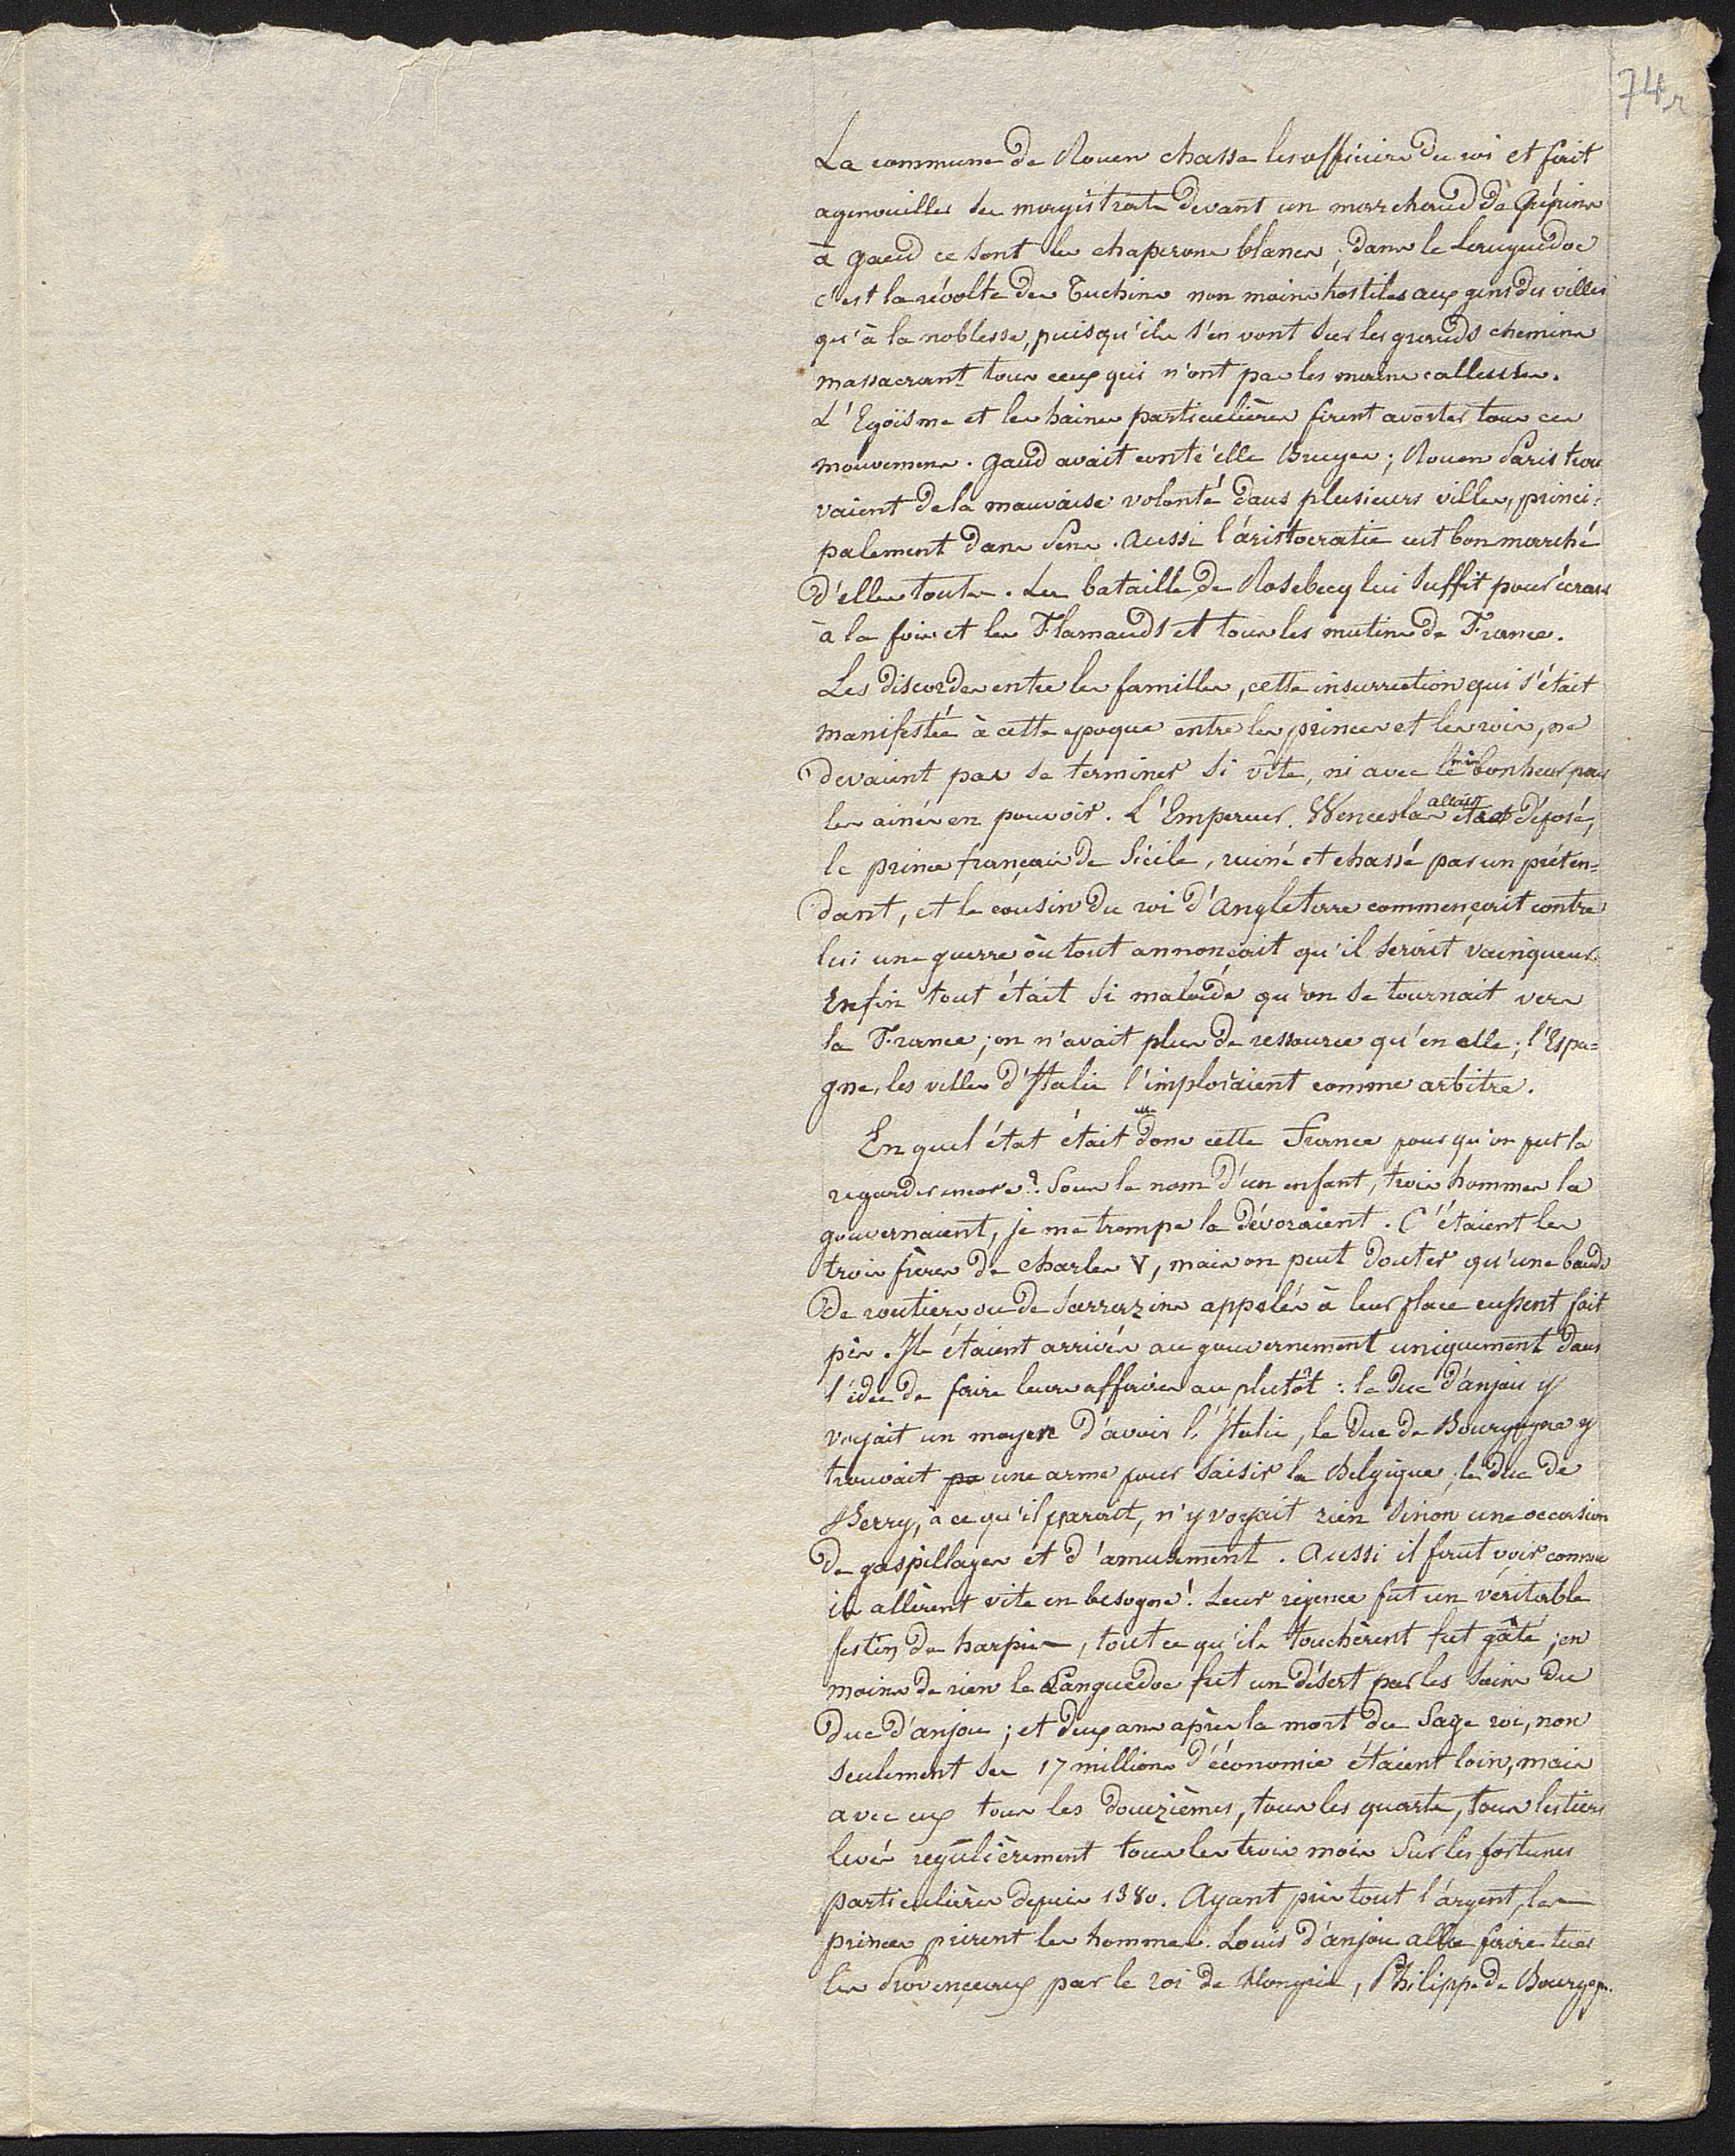 74r
La commune de Rouen chasse les officiers du roi et fait
agenouiller ses magistrats devant un marchand de Crépins
à Gaud ce sont les chaperons blancs ; dans le Languedoc
c'est la révolte des Tuchins non moins hostiles aux gens des villes
qu'à la noblesse, puisqu'ils s'en vont sur les grands chemins
massacrant tous ceux qui n'ont pas les mains calleuses.
L'Egoïsme et les haines particulières firent avorter tous ces
mouvemens. Gaud avait contr'elle Bruges ; Rouen Paris trou
vaient de la mauvaise volonté dans plusieurs villes, princi=
palement dans Sens. Aussi l'aristocratie eut bon marché
d'elles toutes. La bataille de Rosebecq lui suffit pour écraser
à la fois et les Flamands et tous les mutins de France.
Les discordes entre les familles, cette insurrection qui s'était
manifestée à cette epoque entre les princes et les rois, ne
devaient pas se terminer si vîte, ni avec le bonheur pour
les ainés en pouvoir. L'Empereur Wenceslas allait être déposé,
le prince français de Sicile, ruiné et chassé par un préten=
dant, et le cousin du roi d'Angleterre commençait contre
lui une guerre où tout annonçait qu'il serait vainqueur.
Enfin tout était si malade qu'on se tournait vers
la France ; on n'avait plus de ressource qu'en elle ; l'Espa=
gne, les villes d'Italie l'imploraient comme arbitre.
En quel état était elle donc cette France pour qu'on put la
regarder encore ? Sous le nom d'un enfant, trois hommes la
gouvernaient, je me trompe la dévoraient. C'étaient les
trois frères de Charles V, mais on peut douter qu'une bande
de routiers ou de Sarrazins appelés à leur place eussent fait
pis. Ils étaient arrivés au gouvernement uniquement dans
l'idée de faire leurs affaires au plutôt : le Duc d'anjou y
voyait un moyen d'avoir l'Italie, le Duc de Bourgogne y
trouvait pa une arme pour saisir la Belgique ; le Duc de
Berry, à ce qu'il parait, n'y voyait rien sinon une occasion
de gaspillages et d'amusement. Aussi il faut voir comme
ils allèrent vite en besogne ! Leur régence fut un véritable
festin de harpies, tout ce qu'ils touchèrent fut gâté ; en
moins de rien le Languedoc fut un désert par les soins du
Duc d'anjou ; et deux ans après la mort du Sage roi, non
seulement ses 17 millions d'économie étaient loin, mais
avec eux tous les douzièmes, tous les quarts, tous les tiers
levés régulièrement tous les trois mois sur les fortunes
particulières depuis 1380. Ayant pris tout l'argent, les
princes prirent les hommes. Louis d'anjou alla faire tuer
les Provençaux par le roi de Hongrie, Philippe de Bourgogn.